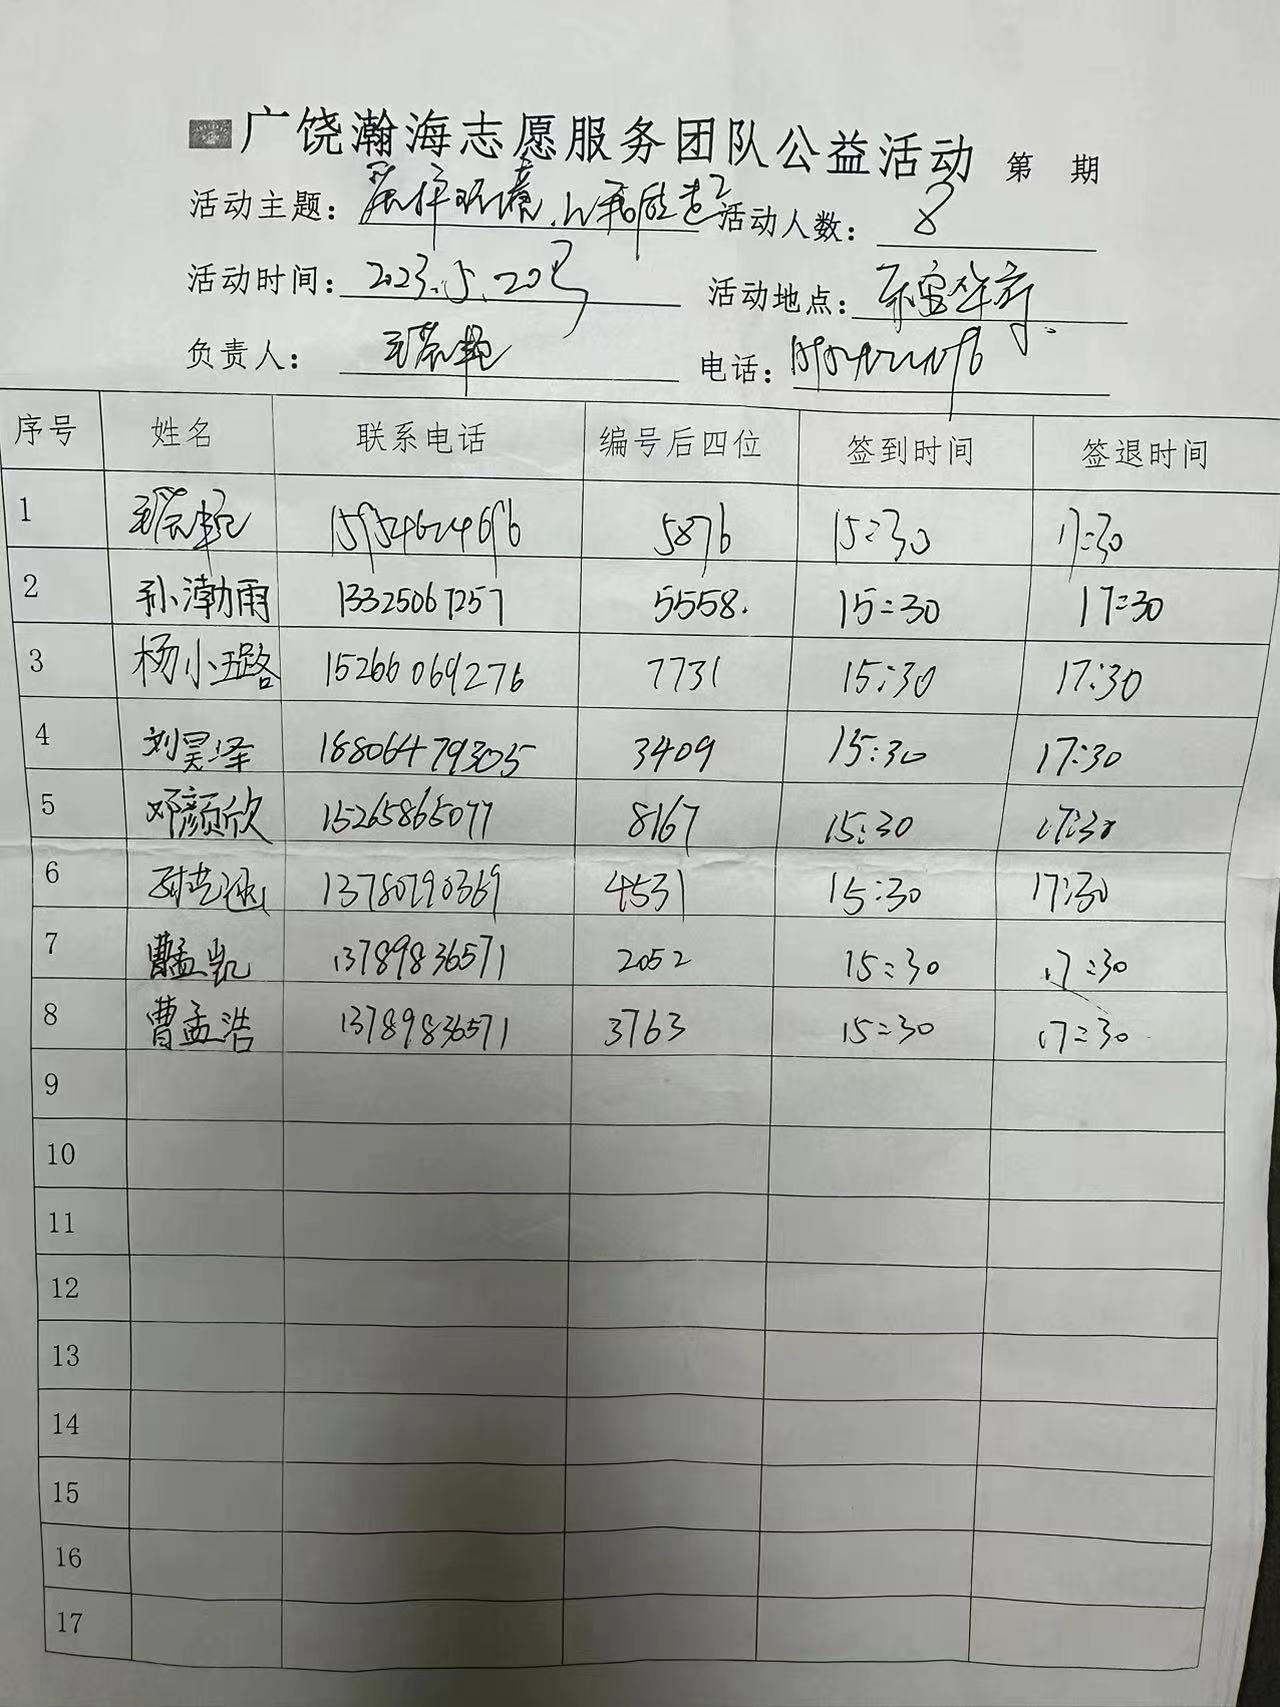 广饶瀚海志愿服务团队公益活动 第 期
活动主题: 爱护环境,从我做起 活动人数: 8
活动时间: 2023.5.20号 活动地点:
负责人: 电话:
序号 姓名 联系电话 编号后四位 签到时间 签退时间
1 5876 15:30 17:30
2 孙渤雨 13325067257 5558. 15:30 17:30
3 杨小璐 15266069276 7731 15:30 17:30
4 刘昊泽 18806479305 3409 15:30 17:30
5 邓颜欣 15265865077 8167 15:30 17:30
6 13780790369 4531 15:30 17:30
7 曹孟凯 13789836571 2052 15:30 17:30
8 曹孟浩 13789836571 3763 15:30 17:30
9
10
11
12
13
14
15
16
17